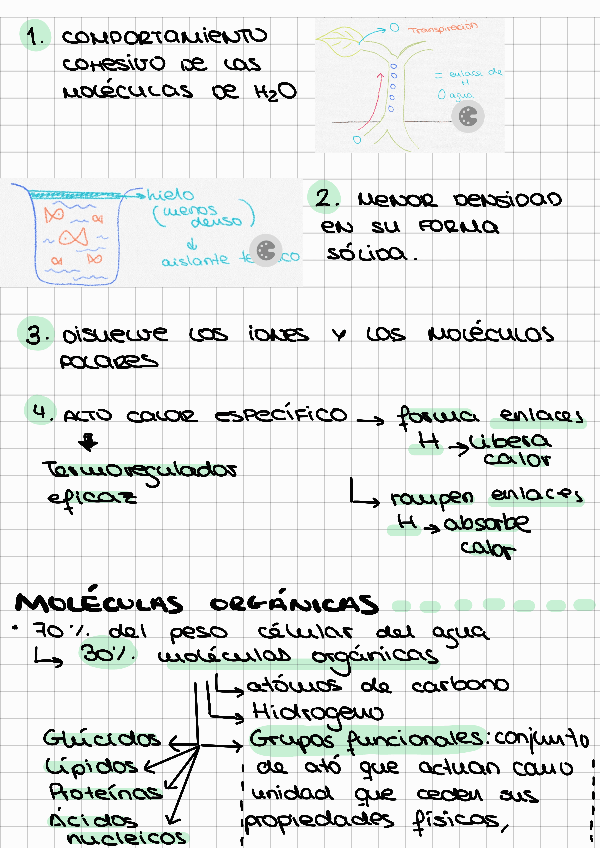 1. COMPORTAMIENTO
COHESIVO DE LAS
MOLÉCULAS DE H2O
O Transpiración
= enlace de
H
O agua
hielo
(menos
denso)
aislante
2. MENOR DENSIDAD
EN SU FORMA
SÓLIDA.
3. DISUELVE LOS IONES Y LAS MOLÉCULAS
POLARES
4. ALTO CALOR ESPECÍFICO → forma enlaces
H → libera
calor
Termoregulador
eficaz
rompen enlaces
H → absorbe
calor
MOLÉCULAS ORGÁNICAS
· 70% del peso célular del agua
30% moléculas orgánicas
atómos de carbono
Hidrogeno
Grupos funcionales: conjunto
de ató que actuan como
unidad que ceden sus
propiedades físicas,
Glúcidos
Lípidos
Proteínas
Ácidos
nucleicos